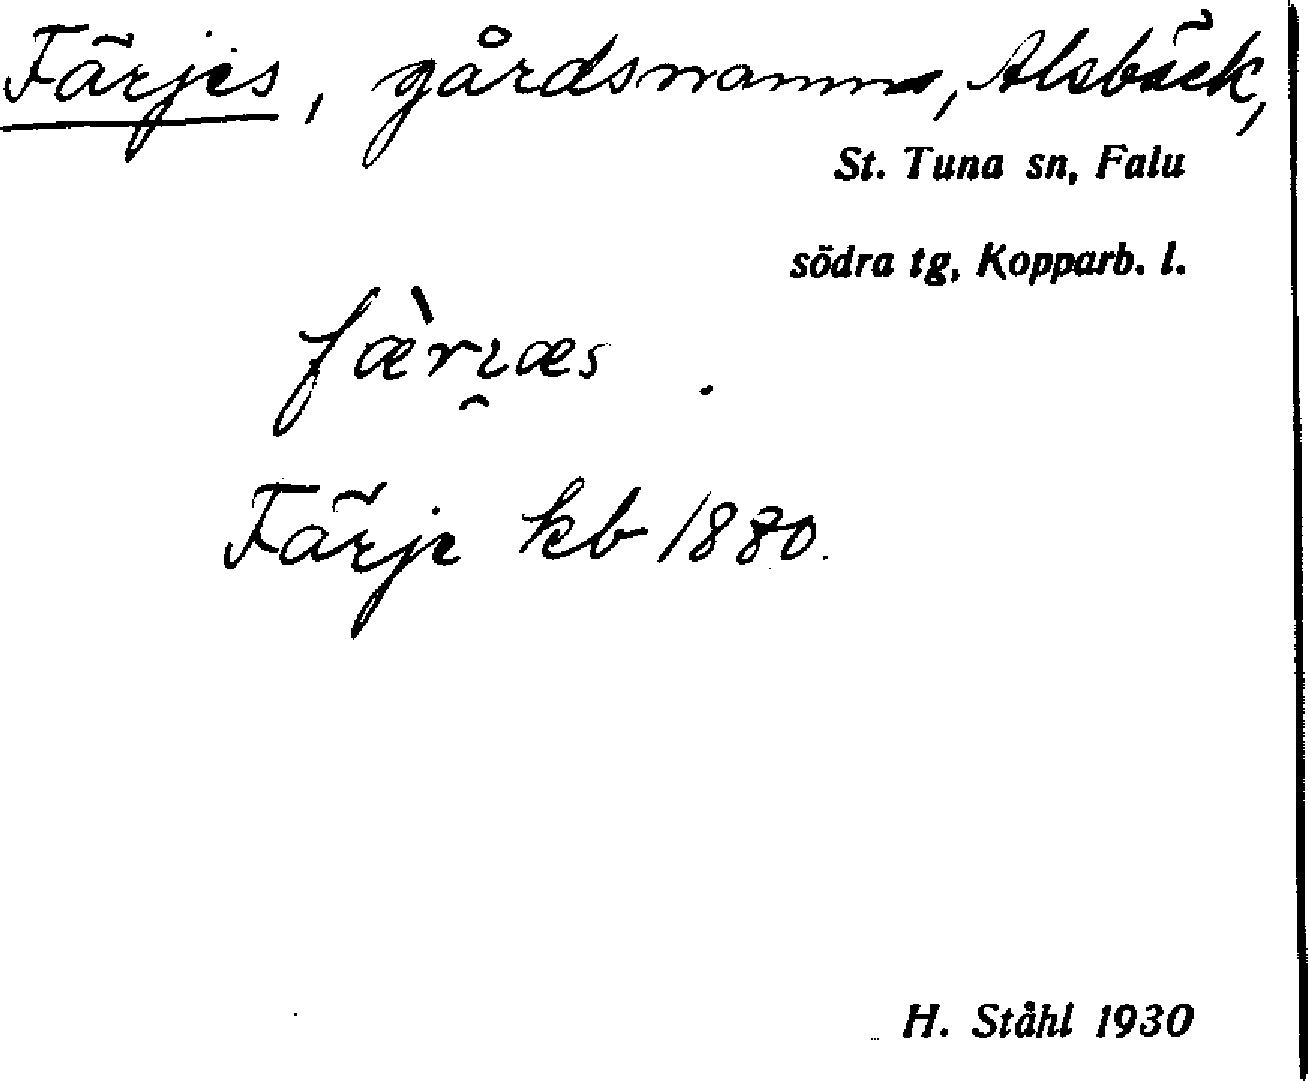 Färjes, gårdsnamn, Alsbäck,
St. Tuna sn, Falu
södra tg, Kopparb. l.
fær̀ɩ̯æs.
Färje kb 1880.
H. Ståhl 1930